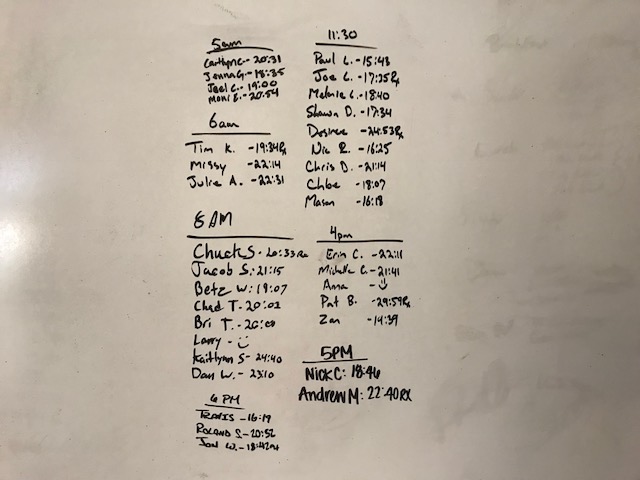 5am
Caitlyn C- 20:31
Jenna G.- 18:35
Joel C.- 19:00
Moni E.- 20:54
6am
Tim K. -19:34Rx
Missy -22:14
Julie A. -22:31
8 AM
Chuck S - 20:33Rx
Jacob S.-21:15
Betz W: 19:07
Chad T. 20:02
Bri T.- 20:00
Larry -
Kaitlynn S- 24:40
Dan W.- 23:10
6 PM
TRAVIS -16:19
ROLAND S.-20:52
JON W.-18:42Rx
11:30
Paul L. -15:43
Joe L. -17:35Rx
Melanie C.-18:40
Shawn D. -17:34
Desiree -24:53Rx
Nic R. -16:25
Chris D. -21:14
Chloe -18:07
Mason -16:18
4pm
Erin C. -22:11
Michelle C.-21:41
Anna -
Pat B. -29:59Rx
Zan -14:39
5PM
NICK C: 18:46
ANDREW M: 22:40RX